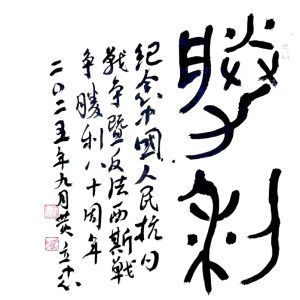 勝利
紀念中國人民抗日
戰争暨反法西斯戰
争勝利八十周年
二〇二五年九月黄立